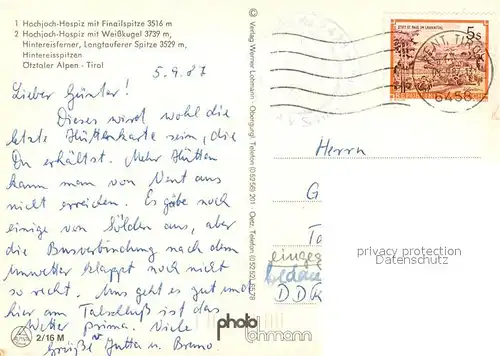 1 Hochjoch-Hospiz mit Finailspitze 3516 m
2 Hochjoch-Hospiz mit Weißkugel 3739 m,
Hintereisferner, Langtauferer Spitze 3529 m,
Hintereisspitzen
Ötztaler Alpen - Tirol
5.9.87
Lieber Günter!
Dieses wird wohl die
letzte Hüttenkarte sein, die
Du erhältst. Mehr Hütten
kann man von Vent aus
nicht erreichen. Es gäbe noch
einige von Sölden aus, aber
die Busverbindung nach dem
Unwetter klappt noch nicht
so recht. Uns geht es gut und
hier am Talschluß ist das
Wetter prima. Viele
Grüße Jutta u. Bruno
2/16 M
© Verlag Werner Lohmann · Obergurgl, Telefon (05256) 201 · Oetz, Telefon (05252) 6578
5s
VENT, TIROL
6458
Herrn
G
Ta
eingeg
DDR
privacy protection
Datenschutz
photo
lohmann